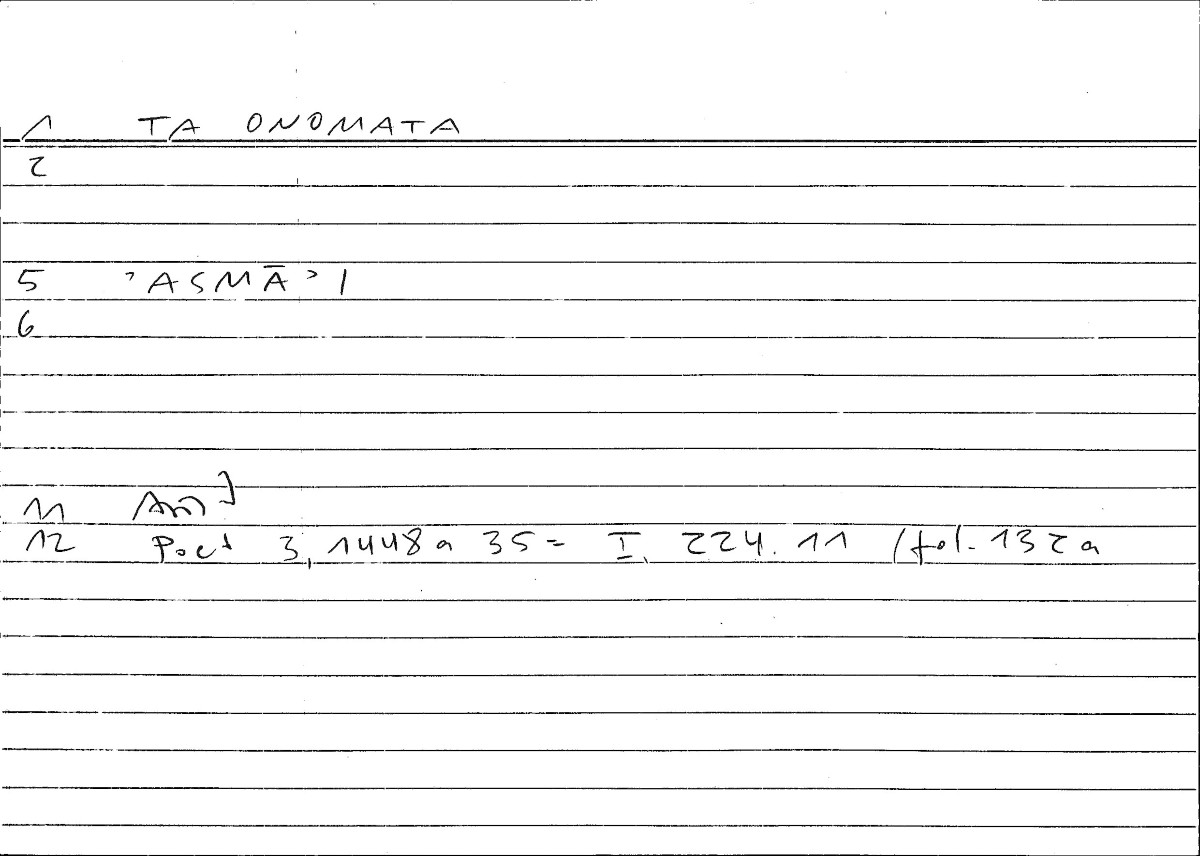 1 TA ONOMATA
2
5 ʾASMĀʾ |
6
11
12 Poet 3,1448a 35= I, 224.11 /fol. 132a